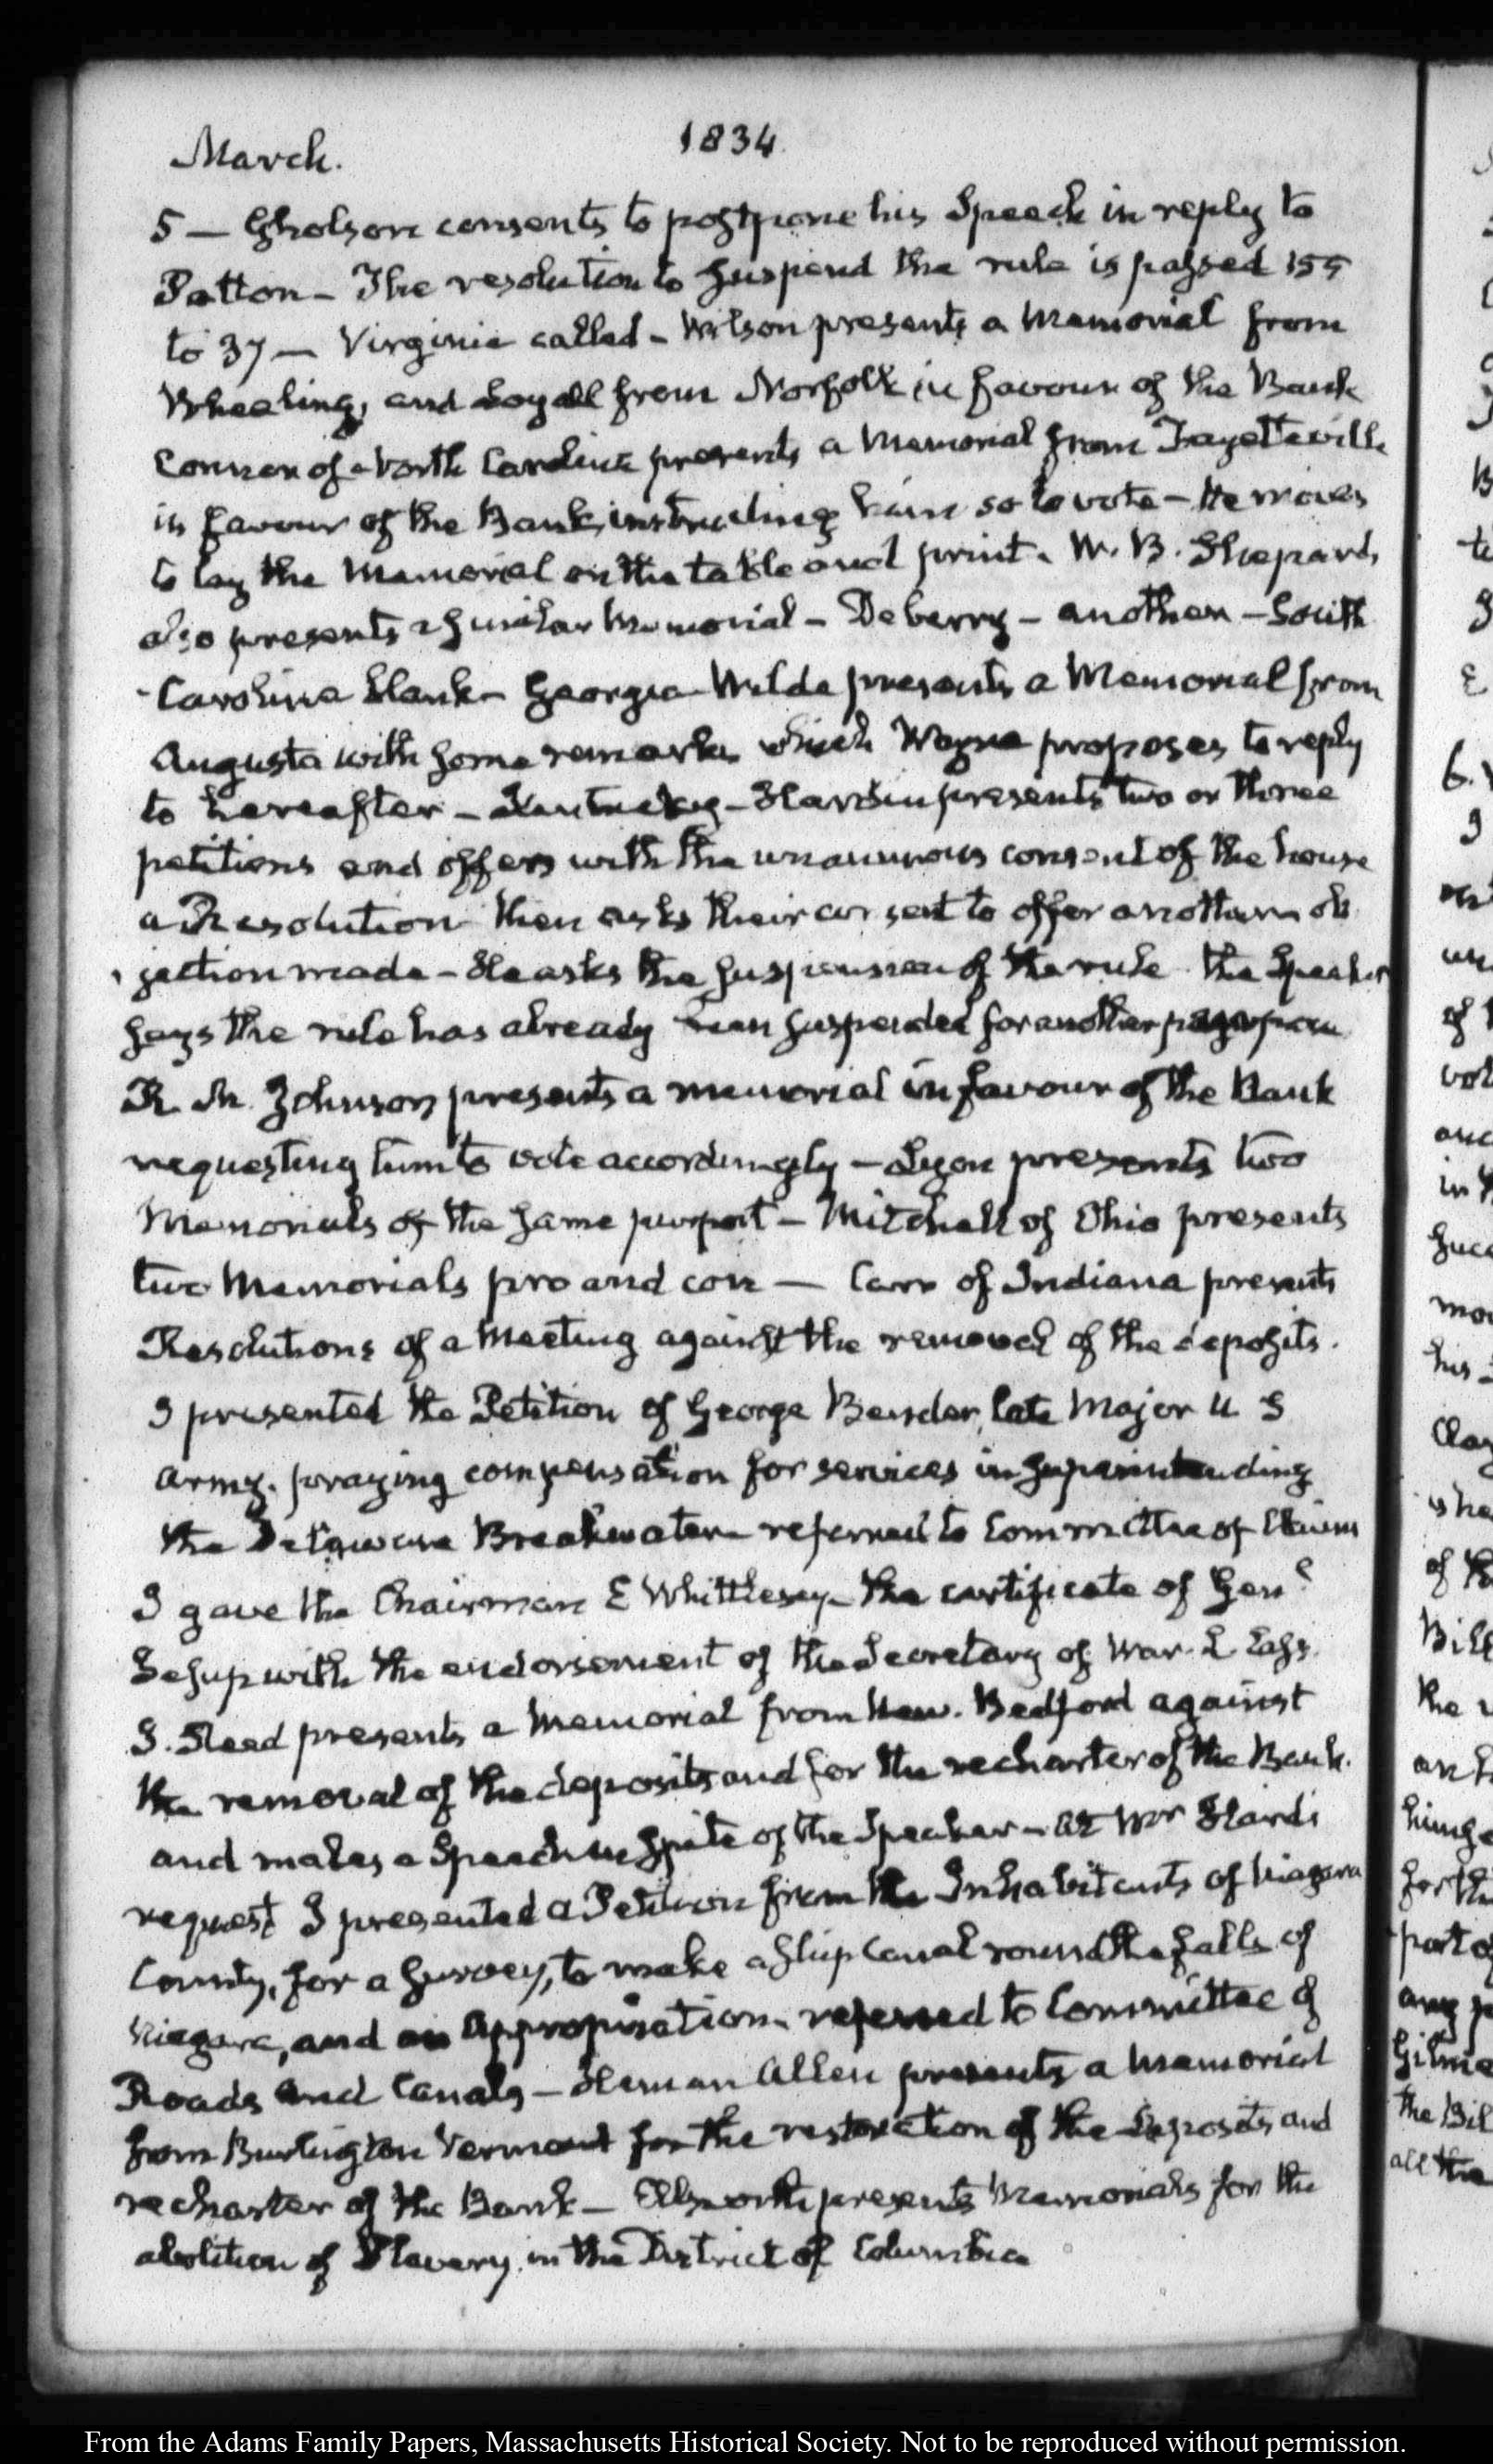 March. 1834
5 — Gholson consents to postpone his Speech in reply to
Patton — The resolution to suspend the rule is passed 155
to 37 — Virginia called — Wilson presents a Memorial from
Wheeling, and Loyall from Norfolk in favour of the Bank
Conner of North Carolina presents a Memorial from Fayetteville
in favour of the Bank, instructing him so to vote — He moves
to lay the Memorial on the table and print. W. B. Shepard,
also presents a similar Memorial — Deberry — another — South
Carolina blank — Georgia — Wilde presents a Memorial from
Augusta with some remarks which Wayne proposes to reply
to hereafter — Kentucky — Hardin presents two or three
petitions and offers with the unanimous consent of the house
a Resolution then asks their consent to offer another ob
jection made — He asks the suspension of the rule the Speaker
says the rule has already been suspended for another
R. M. Johnson presents a memorial in favour of the Bank
requesting him to vote accordingly — Lyon presents two
Memorials of the same purport — Mitchell of Ohio presents
two Memorials pro and con — Carr of Indiana presents
Resolutions of a Meeting against the removal of the deposits.
I presented the Petition of George Bender, late Major U S
Army. praying compensation for services in superintending
the Delaware Breakwater — referred to Committee of Claims
I gave the Chairman E Whittlesey — the certificate of Genl
Jesup with the endorsement of the Secretary of War. L Cass.
J. Reed presents a Memorial from New. Bedford against
the removal of the deposits and for the recharter of the Bank.
and makes a Speech in spite of the Speaker — At Mr Hard's
request I presented a Petition from the Inhabitants of Niagara
County, for a survey, to make a ship Canal round the falls of
Niagara, and an Appropriation. referred to Committee of
Roads and Canals — Heman Allen presents a Memorial
from Burlington Vermont for the restoration of the Deposits and
recharter of the Bank — Elsworth presents Memorials for the
abolition of Slavery in the District of Columbia
From the Adams Family Papers, Massachusetts Historical Society. Not to be reproduced without permission.